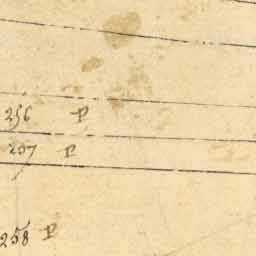 256 P
257 P
258 P